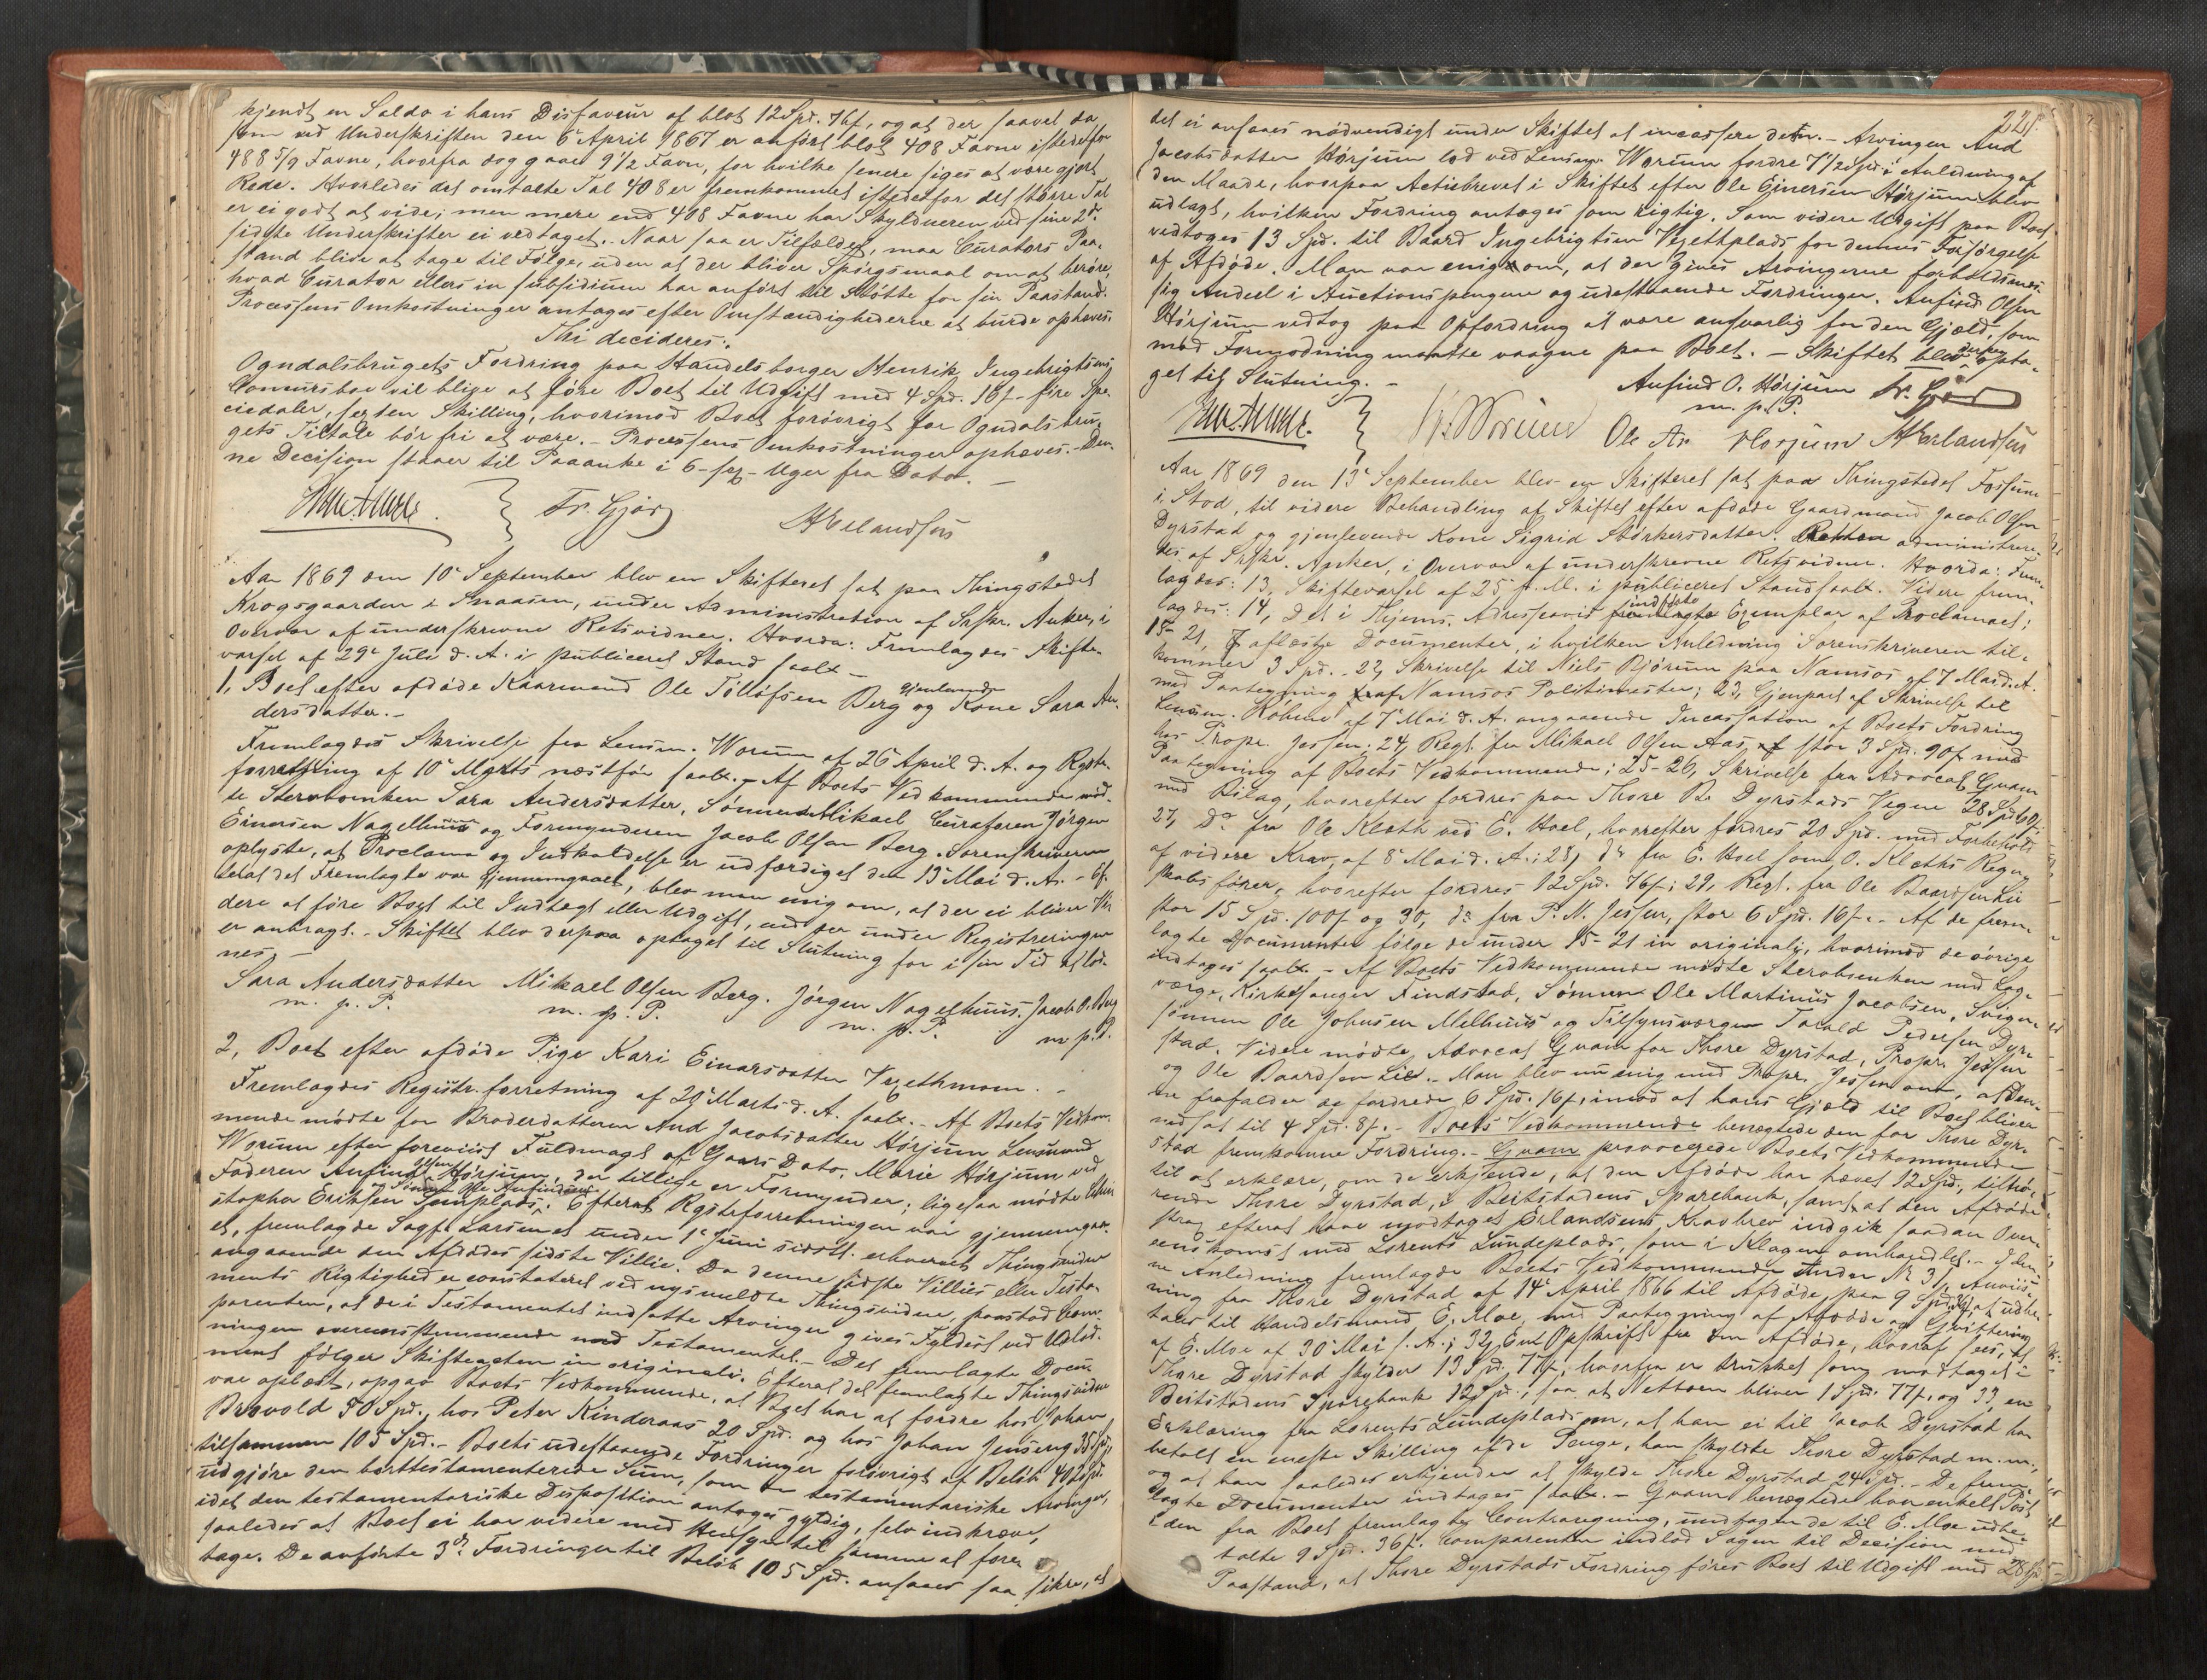 kjendt en Saldo i hans Disfaveur af blot 12 Spd. 76 s, og at der saavel da
som ved Underskriften den 6te April 1867 er anført blot 408 Favne istedetfor
488 5/9 Favne, hvorfra dog gaaer 9 1/2 Favn, for hvilke senere siges at være gjort
Rede. Hvorledes det omtalte Tal 408 er fremkommet istedetfor det større Tal
er ei godt at vide; men mere end 408 Favne har Skyldneren ved sine 2de
sidste Underskrifter ei vedtaget. Naar saa er Tilfældet, maa Curators Paa-
stand blive at tage til Følge, uden at der bliver Spørgsmaal om at berøre,
hvad Curator ellers in subsidium har anført til Støtte for sin Paastand.
Processens Omkostninger antages efter Omstændighederne at burde ophæves.
Thi decideres:
Ogndalsbrugets Fordring paa Handelsborger Henrik Ingebrigtsens
Concursbo vil blive at føre Boet til Udgift med 4 Spd. 16 s - fire Spe-
ciedaler, sexten Skilling, hvorimod Boet forøvrigt for Ogndalsbru-
gets Tiltale bør fri at være. - Processens Omkostninger ophæves. - Den-
ne Decision staaer til Paaanke i 6 - sex - Uger fra Dato. -
Fr. Gjør
H Erlandsen
Aar 1869 den 10de September blev en Skifteret sat paa Thingstedet
Krogsgaarden i Snaasen, under Administration af Sskr. Anker, i
Overvær af underskrevne Retsvidner. Hvorda: Fremlagdes Skifte-
varsel af 29de Juli d. A. i publiceret Stand saal. -
1, Boet efter afdøde Kaarmand Ole Tollefsen Berg og gjenlevende Kone Sara An-
dersdatter. -
Fremlagdes Skrivelse fra Lensm. Worum af 26 April d. A. og Rgstr.
forretning af 10de Marts næstfør saal. - Af Boets Vedkommende mød-
te Sterboenken Sara Andersdatter, Sønnen Mikael, Curatoren Jørgen
Einersen Nagelhuus og Formynderen Jacob Olsen Berg. Sorenskriveren
oplyste, at Proclama og Indkaldelse er udfærdiget den 13de Mai d. A. - Ef-
terat det Fremlagte var gjennemgaaet, blev man enig om, at der ei bliver Vi-
dere at føre Boet til Indtægt eller Udgift, end der under Registreringen
er anbragt. - Skiftet blev derpaa optaget til Slutning for i sin Tid at lod-
nes. -
Sara Andersdatter Mikael Olsen Berg. Jørgen Nagelhuus. Jacob O. Berg
m. p. P. m. p. P. m. p. P. m. p. P.
2, Boet efter afdøde Pige Kari Einarsdatter Vegethmoen.
Fremlagdes Registr. forretning af 29de Marts d. A. saal. - Af Boets Vedkom-
mende mødte for Broderdatteren And Jacobsdatter Hørjum, Lensmand
Worum efter foreviist Fuldmagt af Gaars Dato. Marie Hørjum ved
Faderen Anfind Olsen Hørjum, der tillige er Formynder; ligesaa mødte Chri-
stopher Eriksen Semplads og Sønnen Ole Anfindsen. Efterat Rgstrforretningen var gjennemgaa-
et, fremlagde Sagf. Larsen et under 1ste Juni sidstl. erhvervet Thingsvidne
angaaende den Afdødes sidste Villie. Da denne sidste Villies eller Testa-
ments Rigtighed er constateret ved nysmeldte Thingsvidne, paastod Com-
parenten, at de i Testamentet indsatte Arvinger gives Fyldest ved Udlod-
ningen overensstemmende med Testamentet. - Det fremlagte Docu-
ment følger Skifteacten in originali. Efterat det fremlagte Thingsvidne
var oplæst, opgav Boets Vedkommende, at Boet har at fordre hos Johan
Brovold 50 Spd., hos Peter Kinderaas 20 Spd. og hos Johan Jenseng 35 Spd.,
tilsammen 105 Spd. - Boets udestaaende Fordringer forøvrigt af Beløb 402 Spd.
udgjøre den borttestamenterede Sum, som de testamentariske Arvinger,
idet den testamentariske Disposition antages gyldig, selv indkræve,
saaledes at Boet ei har videre med Hensyn til samme at fore-
tage. De anførte 3de Fordringer til Beløb 105 Spd. ansaaes saa sikre, at
221.
det ei ansaaes nødvendigt under Skiftet at incassere dem. - Arvingen And
Jacobsdatter Hørjum lod ved Lensm. Worum fordre 7 1/2 Spd. i Anledning af
den Maade, hvorpaa Actiebrevet i Skiftet efter Ole Einersen Hørjum blev
udlagt, hvilken Fordring antages som rigtig. Som videre Udgift paa Boet
vedtoges 13 Spd. til Baard Ingebrigtsen Vegethplads for dennes Forsørgelse
af Afdøde. Man var enig om, at der gives Arvingerne forholdsmæs-
sig Andeel i Auctionspengene og udestaaende Fordringer. Anfind Olsen
Hørjum vedtog paa Opfordring at være ansvarlig for den Gjæld, som
mod Formodning maatte vaagne paa Boet. - Skiftet blev derpaa opta-
get til Slutning. -
Anfind O. Hørjum Fr. Gjør
m. p. P.
Worum Ole An. Hørjum H Erlandsen
Aar 1869 den 13de September blev en Skifteret sat paa Thingstedet Fossum
i Stod, til videre Behandling af Skiftet efter afdøde Gaardmand Jacob Olsen
Dyrstad og gjenlevende Kone Sigrid Størkersdatter. Retten administrere-
des af Sskr. Anker, i Overvær af underskrevne Retsvidner. Hvorda: Frem-
lagdes: 13, Skiftevarsel af 25 f. M. i publiceret Stand saal. Videre frem-
lagdes: 14, Det i Thjems. Adresseavis indstøte Exemplar af Proclamaet;
15-21, 7 aflæste Documenter, i hvilken Anledning Sorenskriveren til-
kommer 3 Spd. - 22, Skrivelse til Niels Bjørum paa Namsos af 7 Mai d. A.
med Paategning af Namsos Politimester; 23, Gjenpart af Skrivelse til
Lensm. Røhme af 7de Mai d. A. angaaende Incassation af Boets Fordring
hos Propr. Jessen; 24, Regl. fra Mikael Olsen Aas, stor 3 Spd. 90 s med
Paategning af Boets Vedkommende; 25-26, Skrivelse fra Advocat Gram
med Bilag, hvorefter fordres paa Thore B. Dyrstads Vegne 28 Spd. 60 s
27, Do fra Ole Kleth ved E. Hoel, hvorefter fordres 20 Spd. med Forbehold
af videre Krav, af 8de Mai d. A.; 28, do fra E. Hoel som O. Kleths Regn-
skabsfører, hvorefter fordres 12 Spd. 76 s; 29, Regl. fra Ole Baardsen Lie
stor 15 Spd. 100 s og 30, do fra P. N. Jessen, stor 6 Spd. 16 s. - Af de frem-
lagte Documenter følge de under 15-21 in originali, hvorimod de øvrige
indtages saal. - Af Boets Vedkommende mødte Sterboenken med Lag-
værge, Kirkesanger Findstad, Sønnen Ole Martinus Jacobsen, Sviger-
sønnen Ole Johnsen Melhuus og Tilsynsværgen Torald Pedersen Dyr-
stad. Videre mødte Advocat Gram for Thore Dyrstad, Propr. Jessen
og Ole Baardsen Lie. - Man blev nu enig med Propr. Jessen om, at den-
ne frafalder de fordrede 6 Spd. 16 s, imod at hans Gjæld til Boet bliver
nedsat til 4 Spd. 8 s. - Boets Vedkommende benægtede den for Thore Dyr-
stad fremkomne Fordring. - Gram provocerede Boets Vedkommende
til at erklære, om de erkjende, at den Afdøde har hævet 12 Spd., tilhø-
rende Thore Dyrstad, i Beitstadens Sparebank, samt at den Afdøde
strax efterat have modtaget Erlandsens Kravbrev indgik saadan Over-
eenskomst med Lorents Lundeplads, som i Klagen omhandlet. - I den-
ne Anledning fremlagde Boets Vedkommende under No 31, Anviis-
ning fra Thore Dyrstad af 14de April 1866 til Afdøde, paa 9 Spd. 36 s, at udbe-
tales til Handelsmand E. Moe, med Paategning af Afdøde og Qvittering
af E. Moe af 30de Mai s. A.; 32, Est Opskrift fra den Afdøde, hvoraf sees, at
Thore Dyrstad skylder 13 Spd. 77 s, hvorfra er trukket som modtaget i
Beitstadens Sparebank 12 Spd.; saa at Nettoen bliver 1 Spd. 77 s. og 33, en
Erklæring fra Lorents Lundeplads om, at han ei til Jacob Dyrstad har
betalt en eneste Skilling af de Penge, han skyldte Thore Dyrstad m. m.,
og at han saaledes erkjender at skylde Thore Dyrstad 24 Spd. - De frem-
lagte Documenter indtages saal. - Gram benægtede hver enkelt Post
i den fra Boet fremlagte Contraregning, undtagen de til E. Moe udbe-
talte 9 Spd. 36 s. Comparenten indlod Sagen til Decision med
Paastand, at Thore Dyrstads Fordring føres Boet til Udgift med 28 Spd.